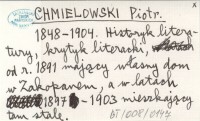 CHMIELOWSKI Piotr. x
1848-1904. Historyk litera-
tury, krytyk literacki,
od r. 1891 mający własny dom
w Zakopanem, a w latach
1897 - 1903 mieszkający
tam stale.